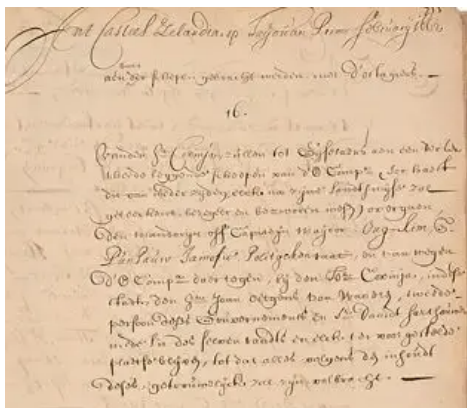 Int Casteel Zelandia op Taijouan Primo februarij 1662
daer
aen der scheepen gebracht werden, met d'erlagers.
16.
Van den Hr Coxinja, zullen tot Gijselaers aen een ter
rheede leggende scheepen van d'E Compe.
die van weder zijden elck na zijne Landtswijse zal
geteeckent, bezegelt en bezwooren
den mandorijn off Capiteijn Majoor Ong-kim, &
Pimpauw Jamosie Politijckenraat, en van wegen
d'E Compe. daer tegen, bij den Hr Coxinja,
den Hr Joan Oetgens van Waveren, tweede
persoon deses Gouvernements en Sr. David Harthouwer
mede in des selven raade en elck ter voorgestelde
plaetse blijven, tot dat alles volgens den inhoudt
deses, getrouwelijck zal zijn volbracht.